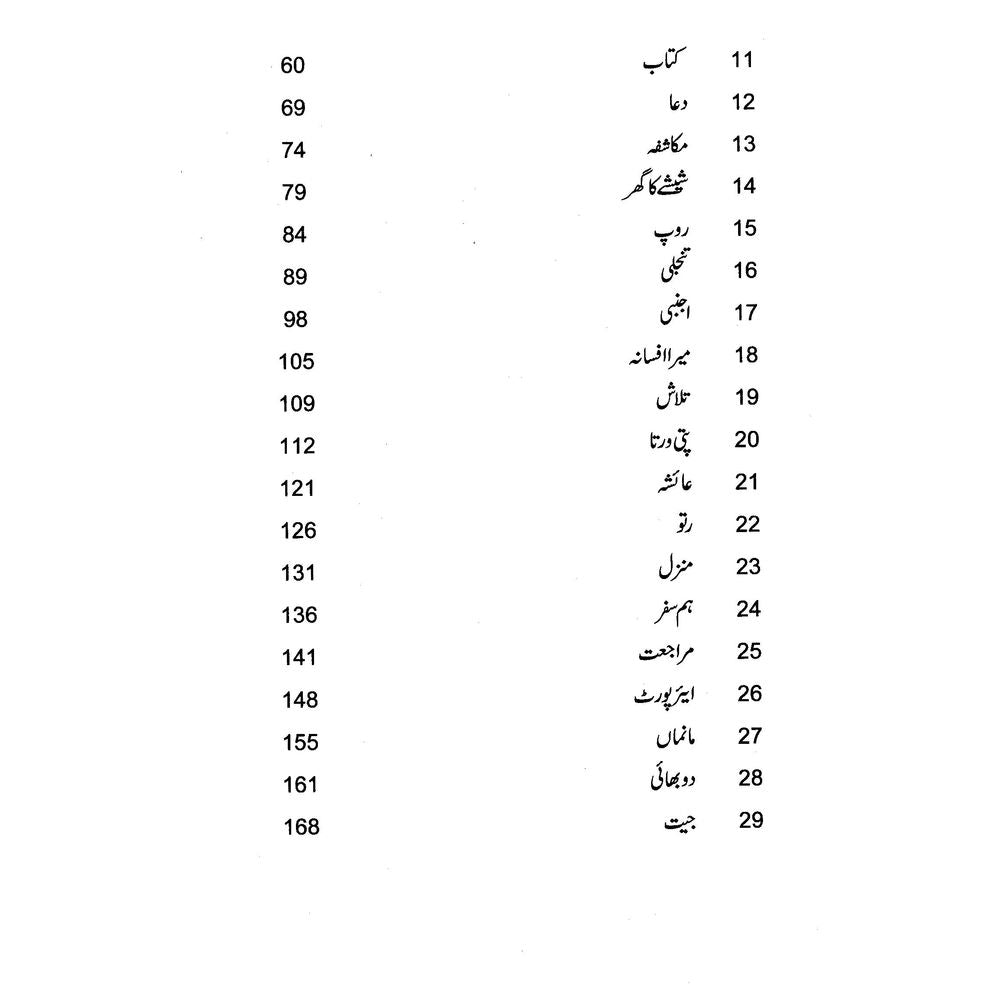 11 کتاب 60
12 دعا 69
13 مکاشفہ 74
14 شیشے کا گھر 79
15 روپ 84
16 تنجلی 89
17 اجنبی 98
18 میرا افسانہ 105
19 تلاش 109
20 پتی ورتا 112
21 عائشہ 121
22 رتو 126
23 منزل 131
24 ہم سفر 136
25 مراجعت 141
26 ایئرپورٹ 148
27 مانماں 155
28 دو بھائی 161
29 جیت 168